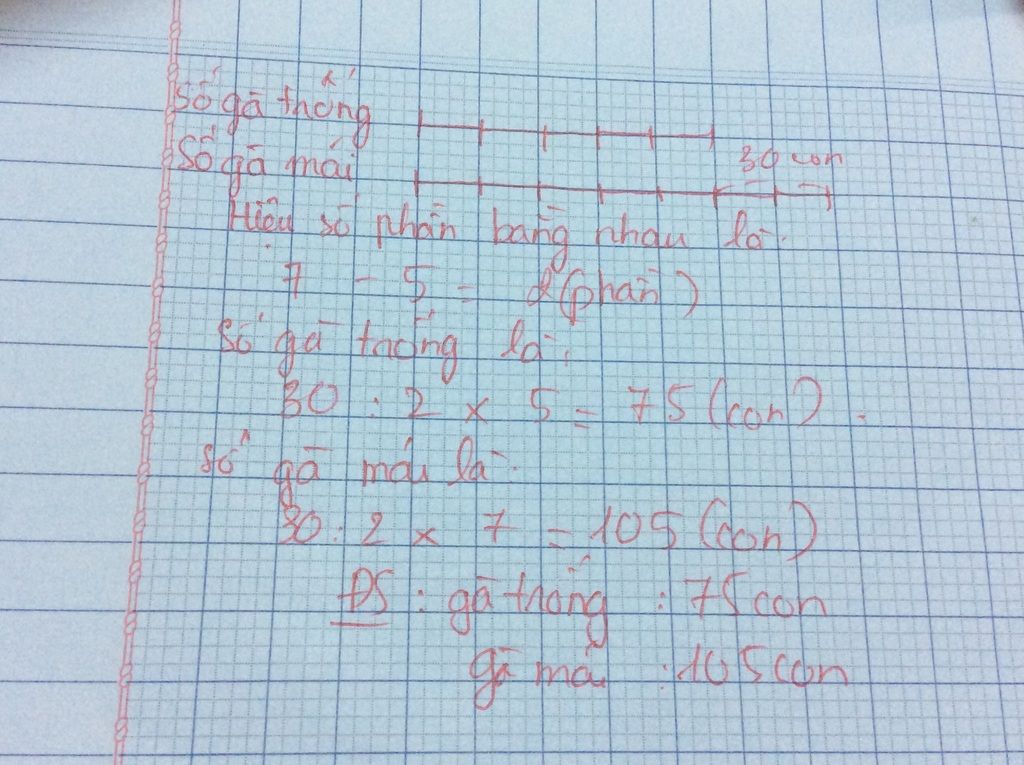 Số gà trống
Số gà mái
30 con
Hiệu số phần bằng nhau là:
7 - 5 = 2 (phần)
Số gà trống là:
30 : 2 x 5 = 75 (con).
Số gà mái là:
30 : 2 x 7 = 105 (con)
ĐS : gà trống : 75 con
gà mái : 105 con